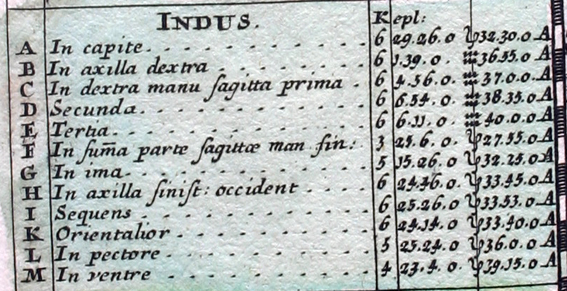 INDUS. Kepl:
A In capite. 6 29.26.0 ♑32.30.0 A
B In axilla dextra 6 1.39.0 ♒36.55.0 A
C In dextra manu sagitta prima 6 4.56.0 ♒37.0.0 A
D Secunda. 6 6.54.0 ♒38.35.0 A
E Tertia. 6 6.11.0 ♒40.0.0 A
F In sum̄a parte sagittæ man. sin: 3 25.6.0 ♑27.55.0 A
G In ima. 5 15.26.0 ♑32.25.0 A
H In axilla sinist: occident 6 24.46.0 ♑33.45.0 A
I Sequens 6 25.26.0 ♑33.53.0 A
K Orientalior 6 24.14.0 ♑33.40.0 A
L In pectore 5 25.24.0 ♑36.0.0 A
M In ventre 4 23.4.0 ♑39.15.0 A